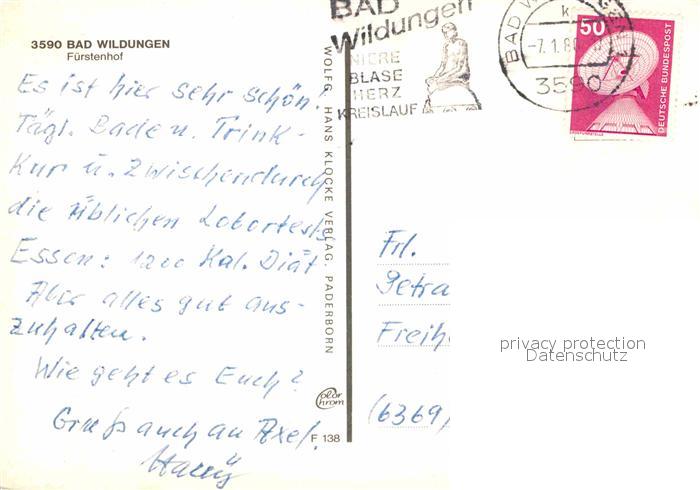 3590 BAD WILDUNGEN
Fürstenhof
Es ist hier sehr schön!
Tägl. Bade u. Trink-
Kur u. Zwischendurch
die üblichen Labortests
Essen: 1200 Kal. Diät
Aber alles gut aus-
zuhalten.
Wie geht es Euch?
Gruß auch an Axel.
F 138
WOLFG. HANS KLOCKE VERLAG, PADERBORN
color
chrom
BAD
Wildungen
NIERE
BLASE
HERZ
KREISLAUF
BAD WILDUNGEN
-7.1.80
3590
50
DEUTSCHE BUNDESPOST
Frl.
Petra
Freih
(6369)
privacy protection
Datenschutz